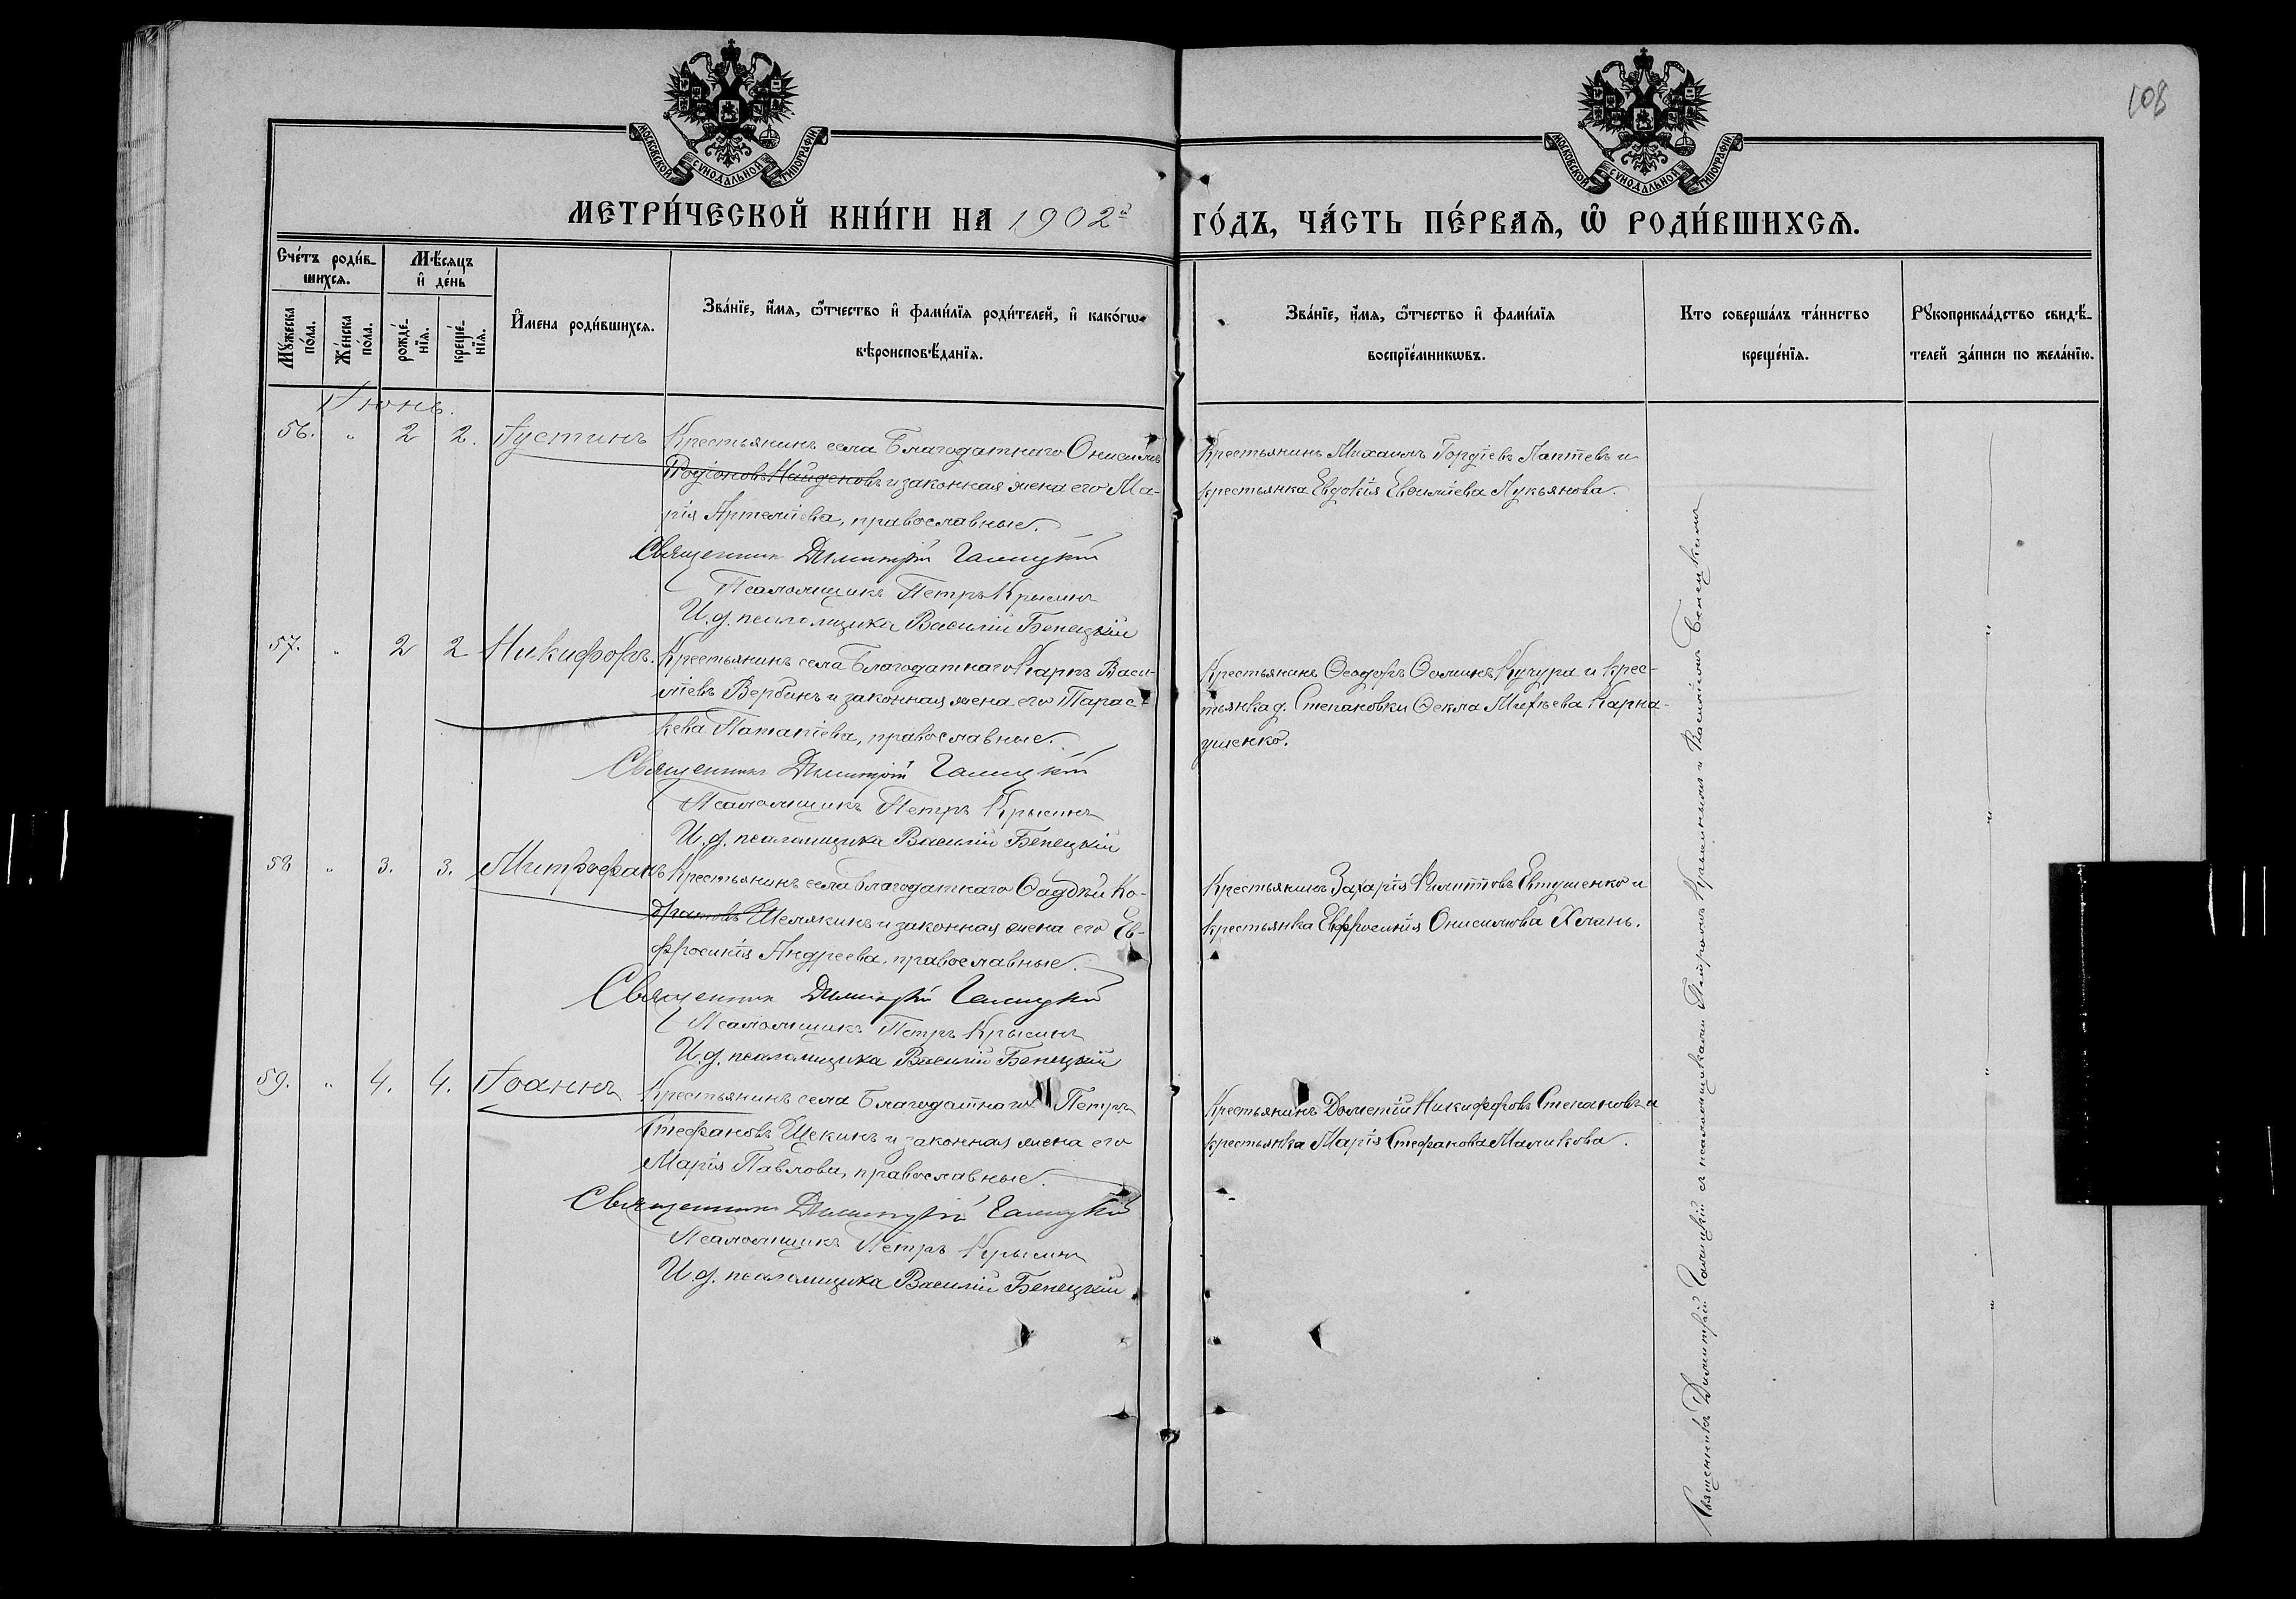 108
МОСКОВСКОЙ СѴНОДАЛЬНОЙ ТИПОГРАФІИ
МОСКОВСКОЙ СѴНОДАЛЬНОЙ ТИПОГРАФІИ
МЕТРИ́ЧЕСКОЙ КНИ́ГИ НА 1902й ГО́ДЪ, ЧА́СТЬ ПЕ́РВАѦ, Ѡ҆ РОДИ́ВШИХСѦ.
Сче́тъ роди́в-
шихсѧ.
Мѣ́сѧцъ
и҆ де́нь
Мꙋ́жеска
по́ла.
Же́нска
по́ла.
рожде́-
нїѧ.
креще́-
нїѧ.
И҆мена роди́вшихсѧ.
Зва́нїе, и҆́мѧ, ѻ҆́тчество и҆ фами́лїѧ роди́телей, и҆ како́гѡ
вѣроисповѣ́данїѧ.
Зва́нїе, и҆́мѧ, ѻ҆́тчество и҆ фами́лїѧ
воспрїе́мникѡвъ.
Кто соверша́лъ та́инство
креще́нїѧ.
Рꙋкоприкла́дство свидѣ́-
телей за́писи по жела́нїю.
Іюнь.
56. " 2 2. Іустинъ Крестьянинъ села Благодатнаго Онисимъ
Родіоновъ Найденовъ и законная жена его Ма-
рія Артеміева, православные.
Священникъ Димитрій Галицкій
Псаломщикъ Петръ Крысинъ
И.д. псаломщика Василій Бенецкій
Крестьянинъ Михаилъ Гордіевъ Лаптевъ и
крестьянка Евдокія Евѳиміева Лукьянова.
57. " 2 2 Никифоръ. Крестьянинъ села Благодатнаго Карпъ Васи-
ліевъ Вербинъ и законная жена его Парас-
кева Потапіева, православные.
Священникъ Димитрій Галицкій
Псаломщикъ Петръ Крысинъ
И.д. псаломщика Василій Бенецкій
Крестьянинъ Ѳеодоръ Ѳоминъ Кучура и крес-
тьянка д. Степановки Ѳекла Михѣева Карна-
ушенко.
58 " 3. 3. Митрофанъ Крестьянинъ села Благодатнаго Ѳаддѣй Ко-
дратовъ Шемякинъ и законная жена его Ев-
фросинія Андреева, православные.
Священникъ Димитрій Галицкій
Псаломщикъ Петръ Крысинъ
И.д. псаломщика Василій Бенецкій
Крестьянинъ Захарія Филипповъ Евтушенко и
крестьянка Евфросинія Онисимова Хлань.
59. " 4. 4. Іоаннъ Крестьянинъ села Благодатнаго Петръ
Стефановъ Щекинъ и законная жена его
Марія Павлова, православные.
Священникъ Димитрій Галицкій
Псаломщикъ Петръ Крысинъ
И.д. псаломщика Василій Бенецкій
Крестьянинъ Дометій Никифоровъ Степановъ и
крестьянка Марія Стефанова Маликова.
Священникъ Димитрій Галицкій съ псаломщиками Петромъ Крысинымъ и Василіемъ Бенецкимъ